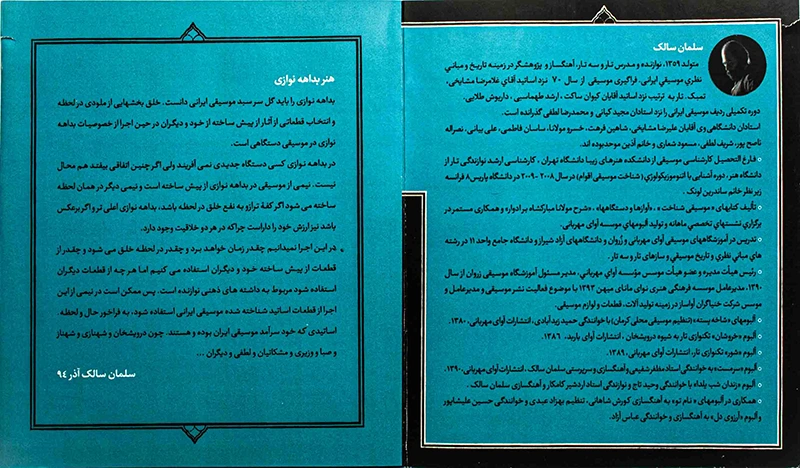 سلمان سالک
متولد ۱۳۵۹، نوازنده و مدرس تار و سه تار، آهنگساز و پژوهشگر در زمینه تاریخ و مبانی
نظری موسیقی ایرانی. فراگیری موسیقی از سال ۷۰ نزد اساتید آقای غلامرضا مشایخی،
تمبک. تار به ترتیب نزد اساتید آقایان کیوان ساکت، ارشد طهماسبی، داریوش طلایی.
دوره تکمیلی ردیف موسیقی ایرانی را نزد استادان مجید کیانی و محمدرضا لطفی گذرانده است.
استادان دانشگاهی وی آقایان علیرضا مشایخی، شاهین فرهت، خسرو مولانا، ساسان فاطمی، علی بیانی، نصراله
ناصح پور، شریف لطفی، مسعود شعاری و خانم آذین موحدبوده اند.
فارغ التحصیل کارشناسی موسیقی از دانشکده هنرهای زیبا دانشگاه تهران ، کارشناسی ارشد نوازندگی تار از
دانشگاه هنر، دوره آشنایی با اتنوموزیکولوژی ( شناخت موسیقی اقوام) در سال ۲۰۰۸-۲۰۰۹ در دانشگاه پاریس۸ فرانسه
زیر نظر خانم ساندرین لوپوک .
تألیف کتابهای « موسیقی شناخت » ، «آوازها و دستگاهها» ، «شرح مولانا مبارکشاه بر ادوار» و همکاری مستمر در
برگزاری نشستهای تخصصی ماهانه و تولید آلبومهای موسسه آوای مهربانی.
تدریس در آموزشگاههای موسیقی آوای مهربانی و ژروان و دانشگاههای آزاد شیراز و دانشگاه جامع واحد ۱۱ در رشته
های مبانی نظری و تاریخ موسیقی و سازهای تار و سه تار .
رئیس هیأت مدیره و عضو هیأت موسس مؤسسه آوای مهربانی، مدیر مسئول آموزشگاه موسیقی ژروان از سال
۱۳۹۰، مدیرعامل موسسه فرهنگی هنری نوای مانای میهن ۱۳۹۳ با موضوع فعالیت نشر موسیقی و مدیرعامل و
موسس شرکت خنیاگران آواساز در زمینه تولید آلات، قطعات و لوازم موسیقی.
آلبومهای «شاخه پسته» (تنظیم موسیقی محلی کرمان) با خوانندگی حمید زیدآبادی، انتشارات آوای مهربانی، ۱۳۸۰.
آلبوم «خروشان» تکنوازی تار به شیوه درویشخان ، انتشارات آوای باربد، ۱۳۸۶.
آلبوم «شور» تکنوازی تار، انتشارات آوای مهربانی، ۱۳۸۹.
آلبوم «سرمست» به خوانندگی استاد مظفر شفیعی و آهنگسازی و سرپرستی سلمان سالک، انتشارات آوای مهربانی، ۱۳۹۰.
آلبوم «زندان شب یلدا» با خوانندگی وحید تاج و نوازندگی استاد اردشیر کامکار و آهنگسازی سلمان سالک .
همکاری در آلبومهای « نام تو» به آهنگسازی کورش شاهانی، تنظیم بهزاد عبدی و خوانندگی حسین علیشاپور
و آلبوم «آرزوی دل» به آهنگسازی و خوانندگی عباس آزاد.
هنر بداهه نوازی
بداهه نوازی را باید گل سر سبد موسیقی ایرانی دانست. خلق بخشهایی از ملودی در لحظه
و انتخاب قطعاتی از آثار از پیش ساخته از خود و دیگران در حین اجرا از خصوصیات بداهه
نوازی در موسیقی دستگاهی است.
در بداهه نوازی کسی دستگاه جدیدی نمی آفریند ولی اگر چنین اتفاقی بیفتد هم محال
نیست. نیمی از موسیقی در بداهه نوازی از پیش ساخته است و نیمی دیگر در همان لحظه
ساخته می شود اگر کفهٔ ترازو به نفع خلق در لحظه باشد، بداهه نوازی اعلی تر و اگر برعکس
باشد نیز ارزش خود را داراست چرا که در هر دو خلاقیت وجود دارد.
در این اجرا نمیدانیم چقدر زمان خواهد برد و چقدر در لحظه خلق می شود و چقدر از
قطعات از پیش ساخته خود و دیگران استفاده می کنیم اما هر چه از قطعات دیگران
استفاده شود مربوط به داشته های ذهنی نوازنده است. پس ممکن است در نیمی از این
اجرا از قطعات اساتید شناخته شده موسیقی ایرانی استفاده شود، به فراخور حال و لحظه.
اساتیدی که خود سرآمد موسیقی ایران بوده و هستند. چون درویشخان و شهنازی و شهناز
و صبا و وزیری و مشکاتیان و لطفی و دیگران ...
سلمان سالک آذر ۹٤